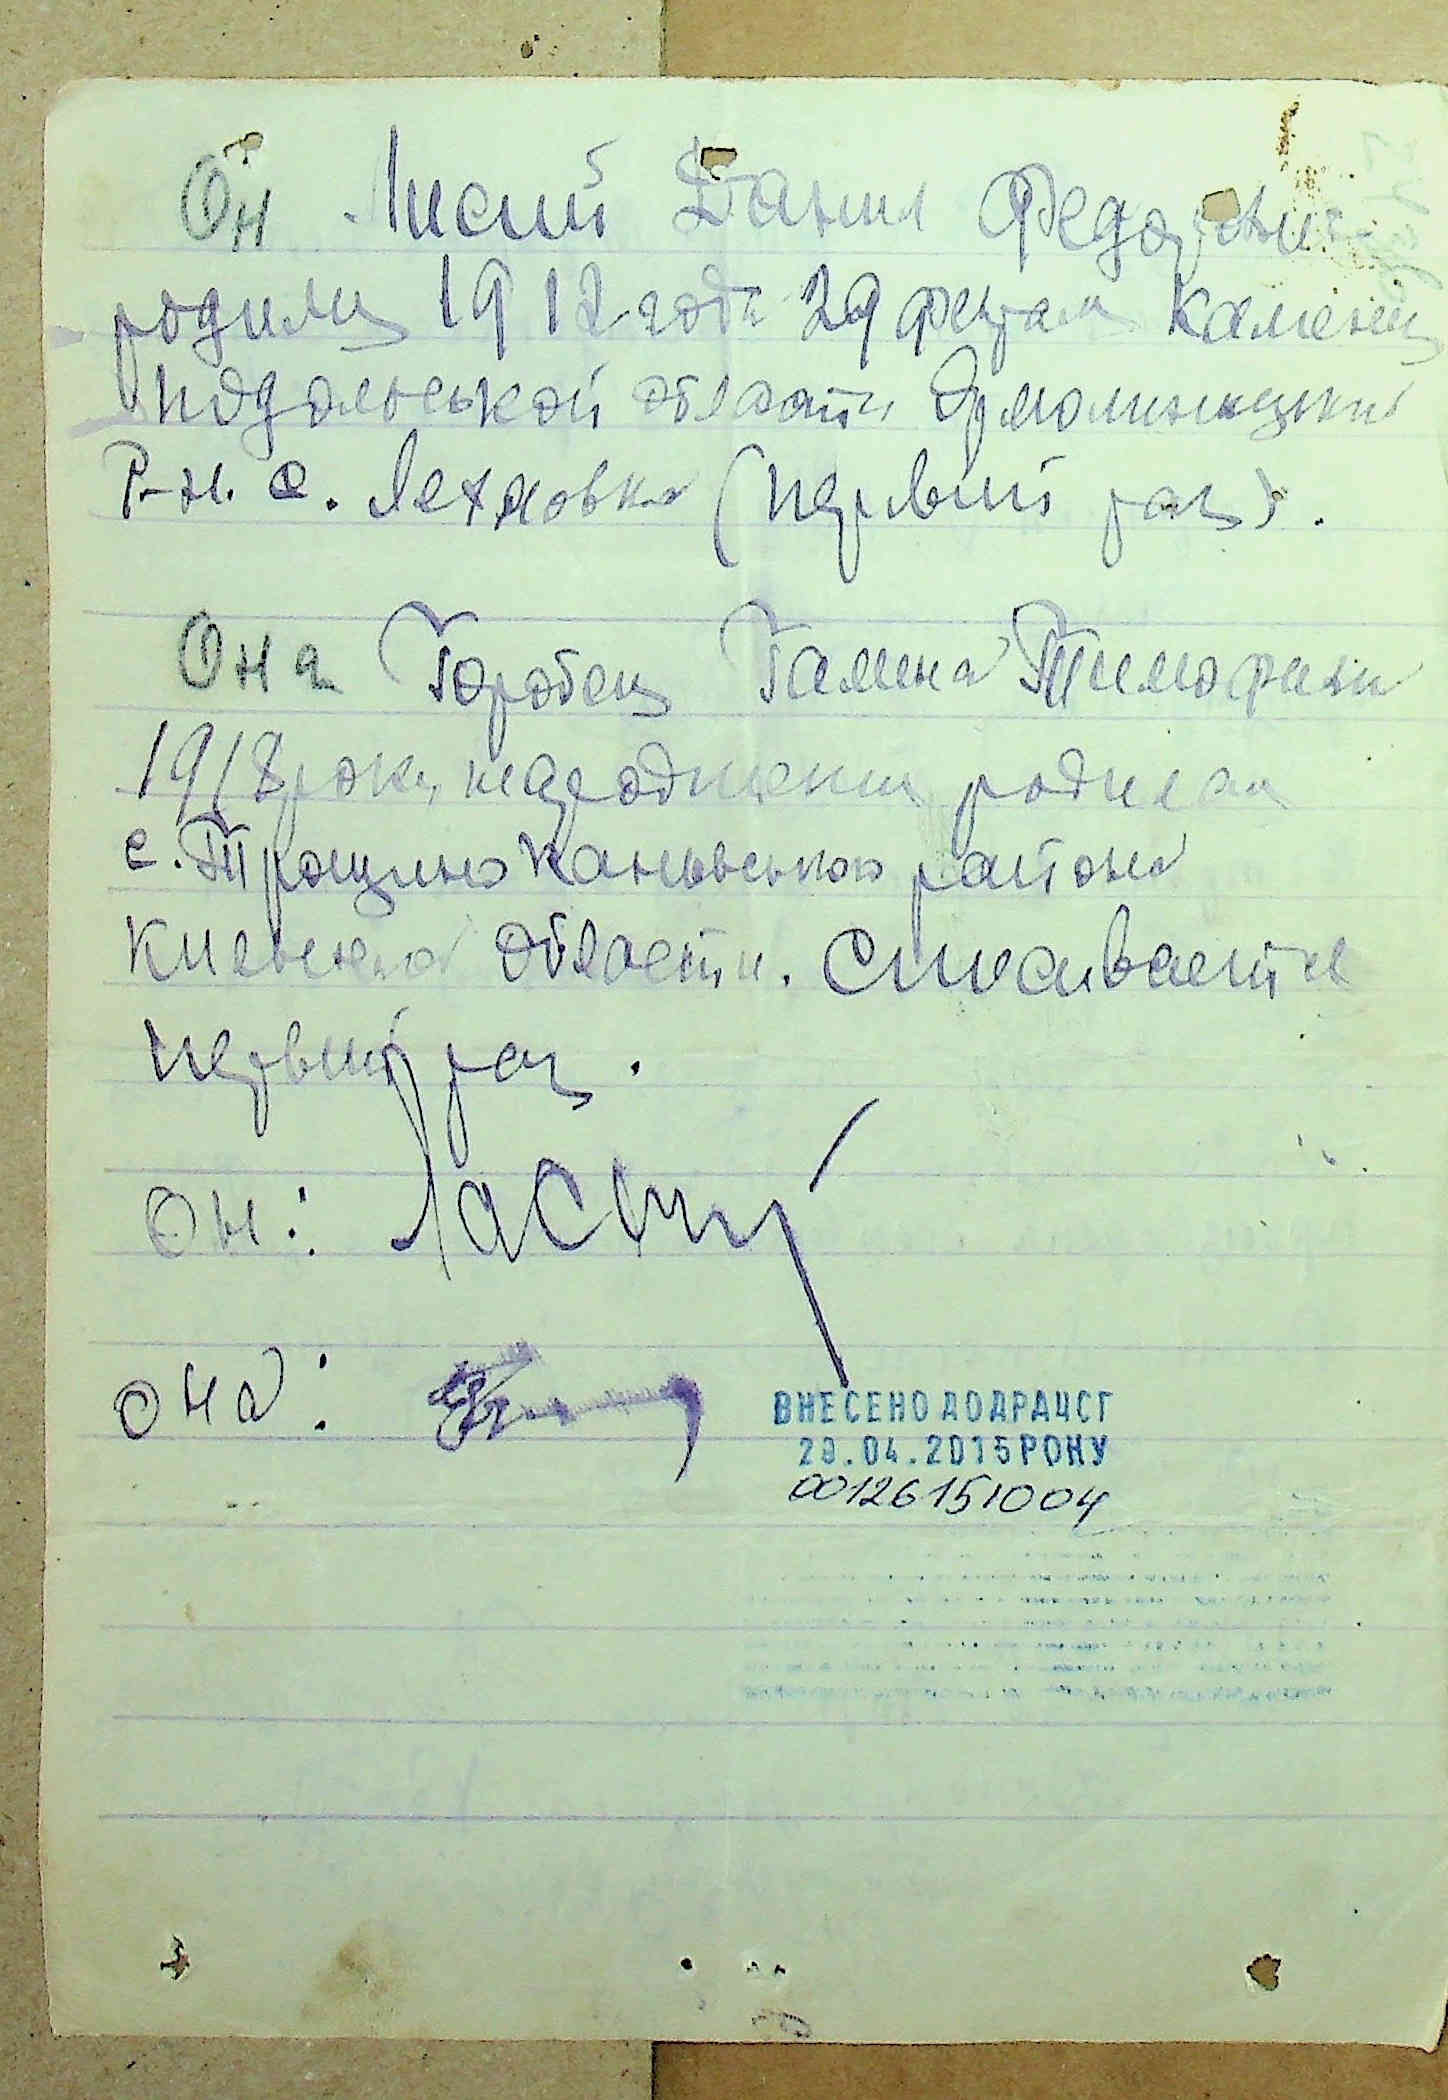 Он Лисий Данил Федорович
родилца 1912 года 29 феврал Каменец
Подольськой области Ярмолинецкий
Р-н. с. Лехновка (первый раз).
Она Горобец Галина Тимофеевна
1918 року нарождения родилась
с. Трощино Каневського района
Киевской области. списывается
первый раз.
Он: Лисий
она:
ВНЕСЕНО ДО ДРАЦСГ
20.04.2015 РОКУ
00126151004